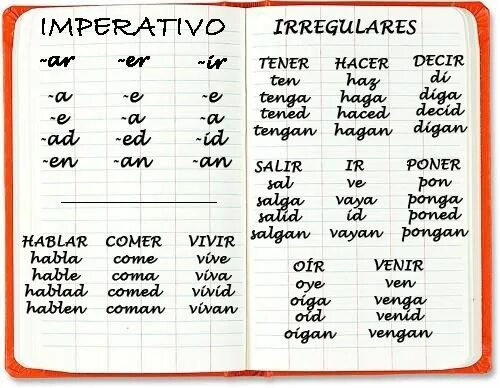 IMPERATIVO
~ar ~er ~ir
~a ~e ~e
~e ~a ~a
~ad ~ed ~id
~en ~an ~an
HABLAR COMER VIVIR
habla come vive
hable coma viva
hablad comed vivid
hablen coman vivan
IRREGULARES
TENER HACER DECIR
ten haz di
tenga haga diga
tened haced decid
tengan hagan digan
SALIR IR PONER
sal ve pon
salga vaya ponga
salid id poned
salgan vayan pongan
OÍR VENIR
oye ven
oiga venga
oid venid
oigan vengan